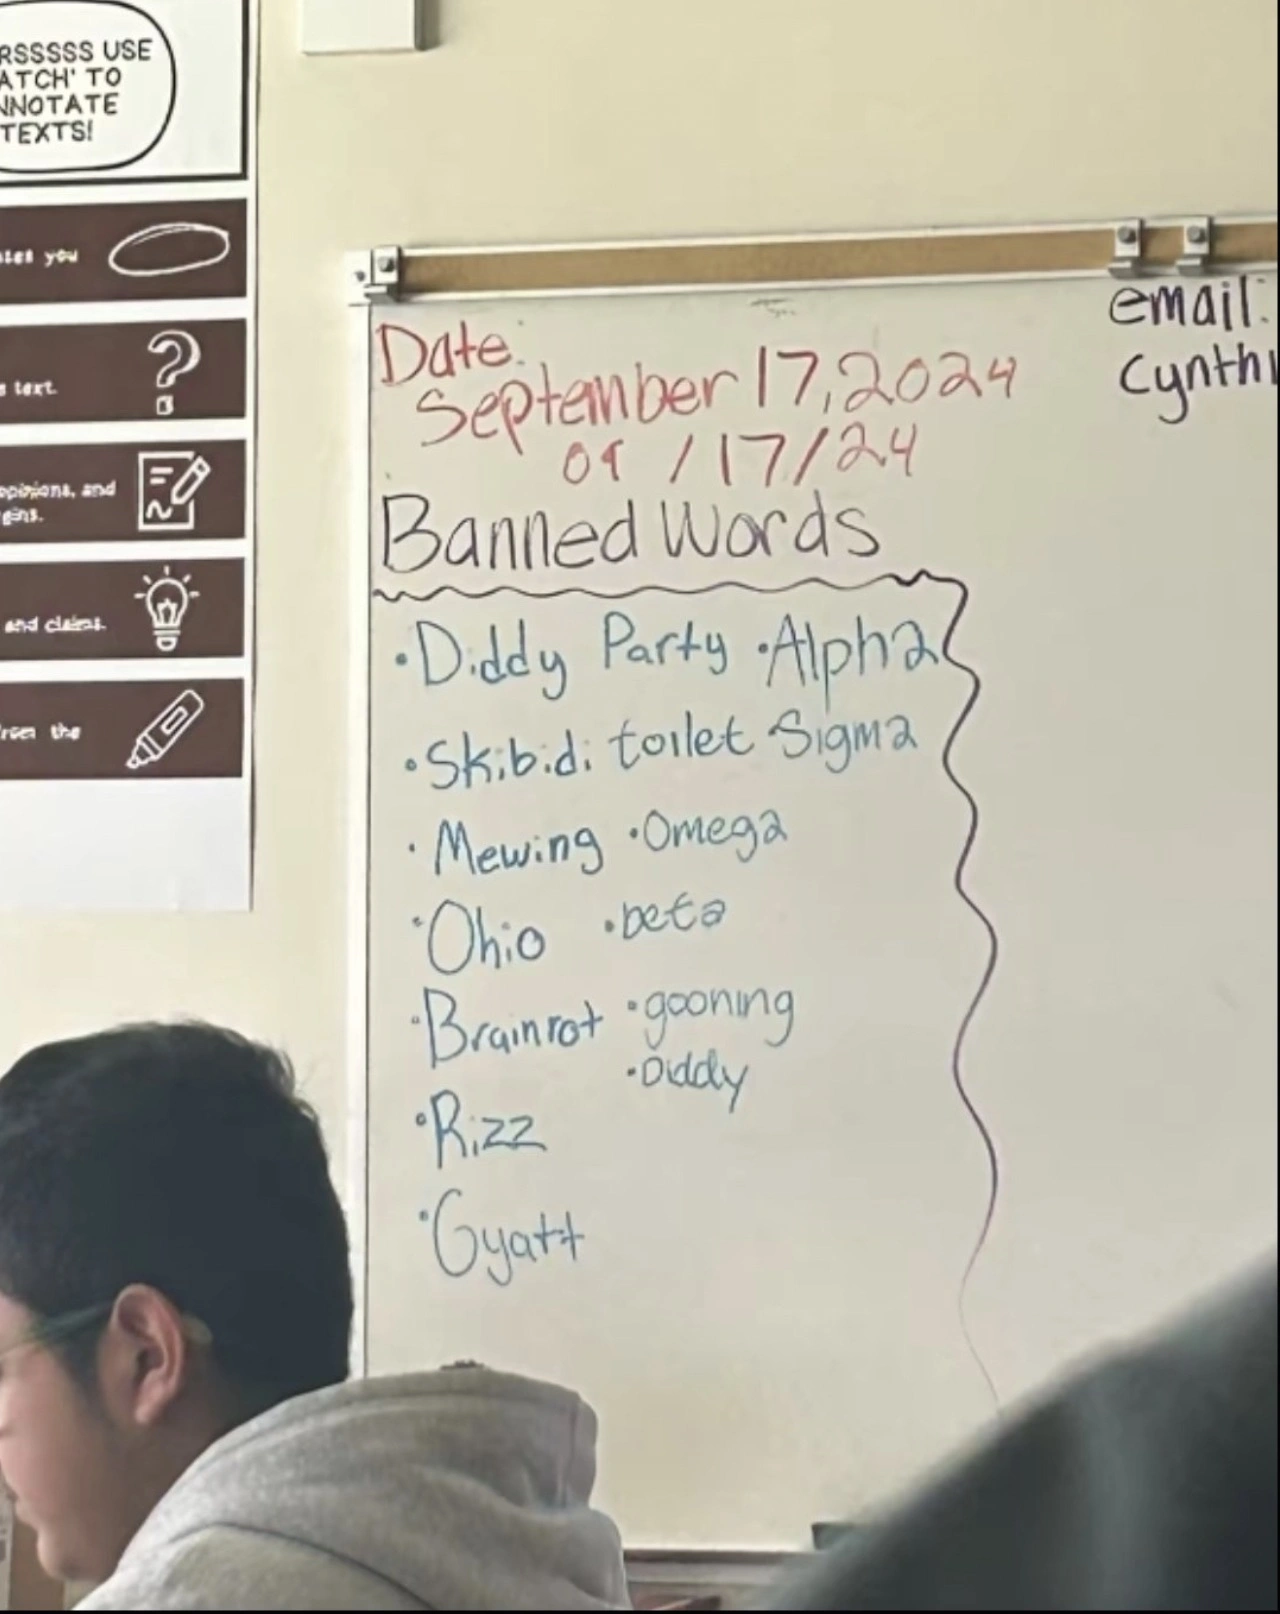 RSSSSS USE
ATCH' TO
NNOTATE
TEXTS!
you
text.
opinions, and
and claims.
from the
email:
Cynthi
Date:
September 17, 2024
09/17/24
Banned Words
• Diddy Party • Alpha
• Skibidi toilet • Sigma
• Mewing • Omega
• Ohio • beta
• Brainrot • gooning
• Diddy
• Rizz
• Gyatt